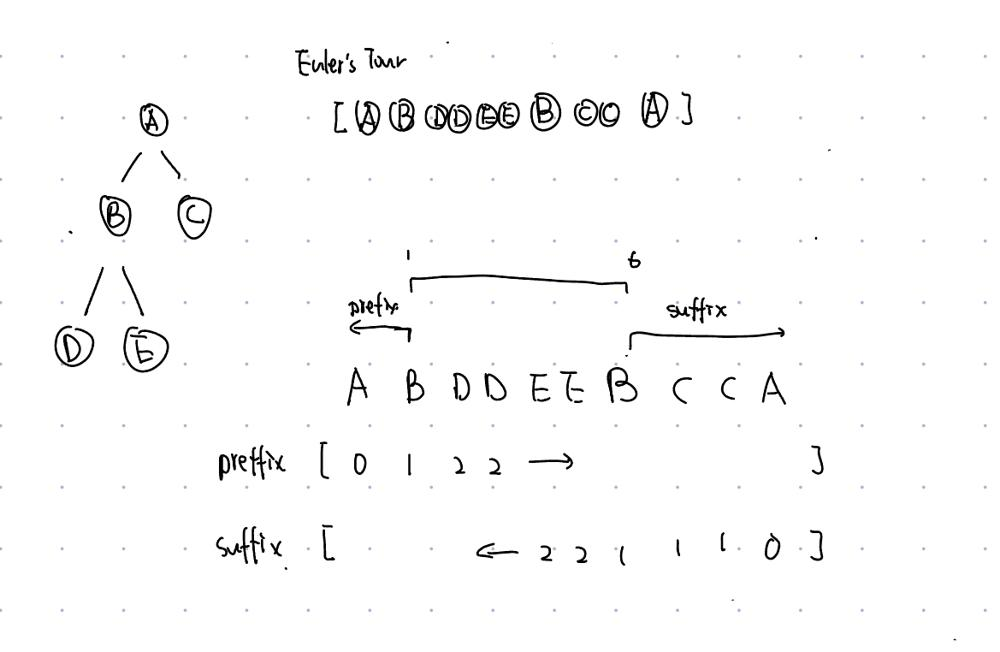 Euler's Tour
[ A B D D E E B C C A ]
A
B C
D E
1 6
prefix suffix
A B D D E E B C C A
preffix [ 0 1 2 2 → ]
suffix [ ← 2 2 1 1 1 0 ]